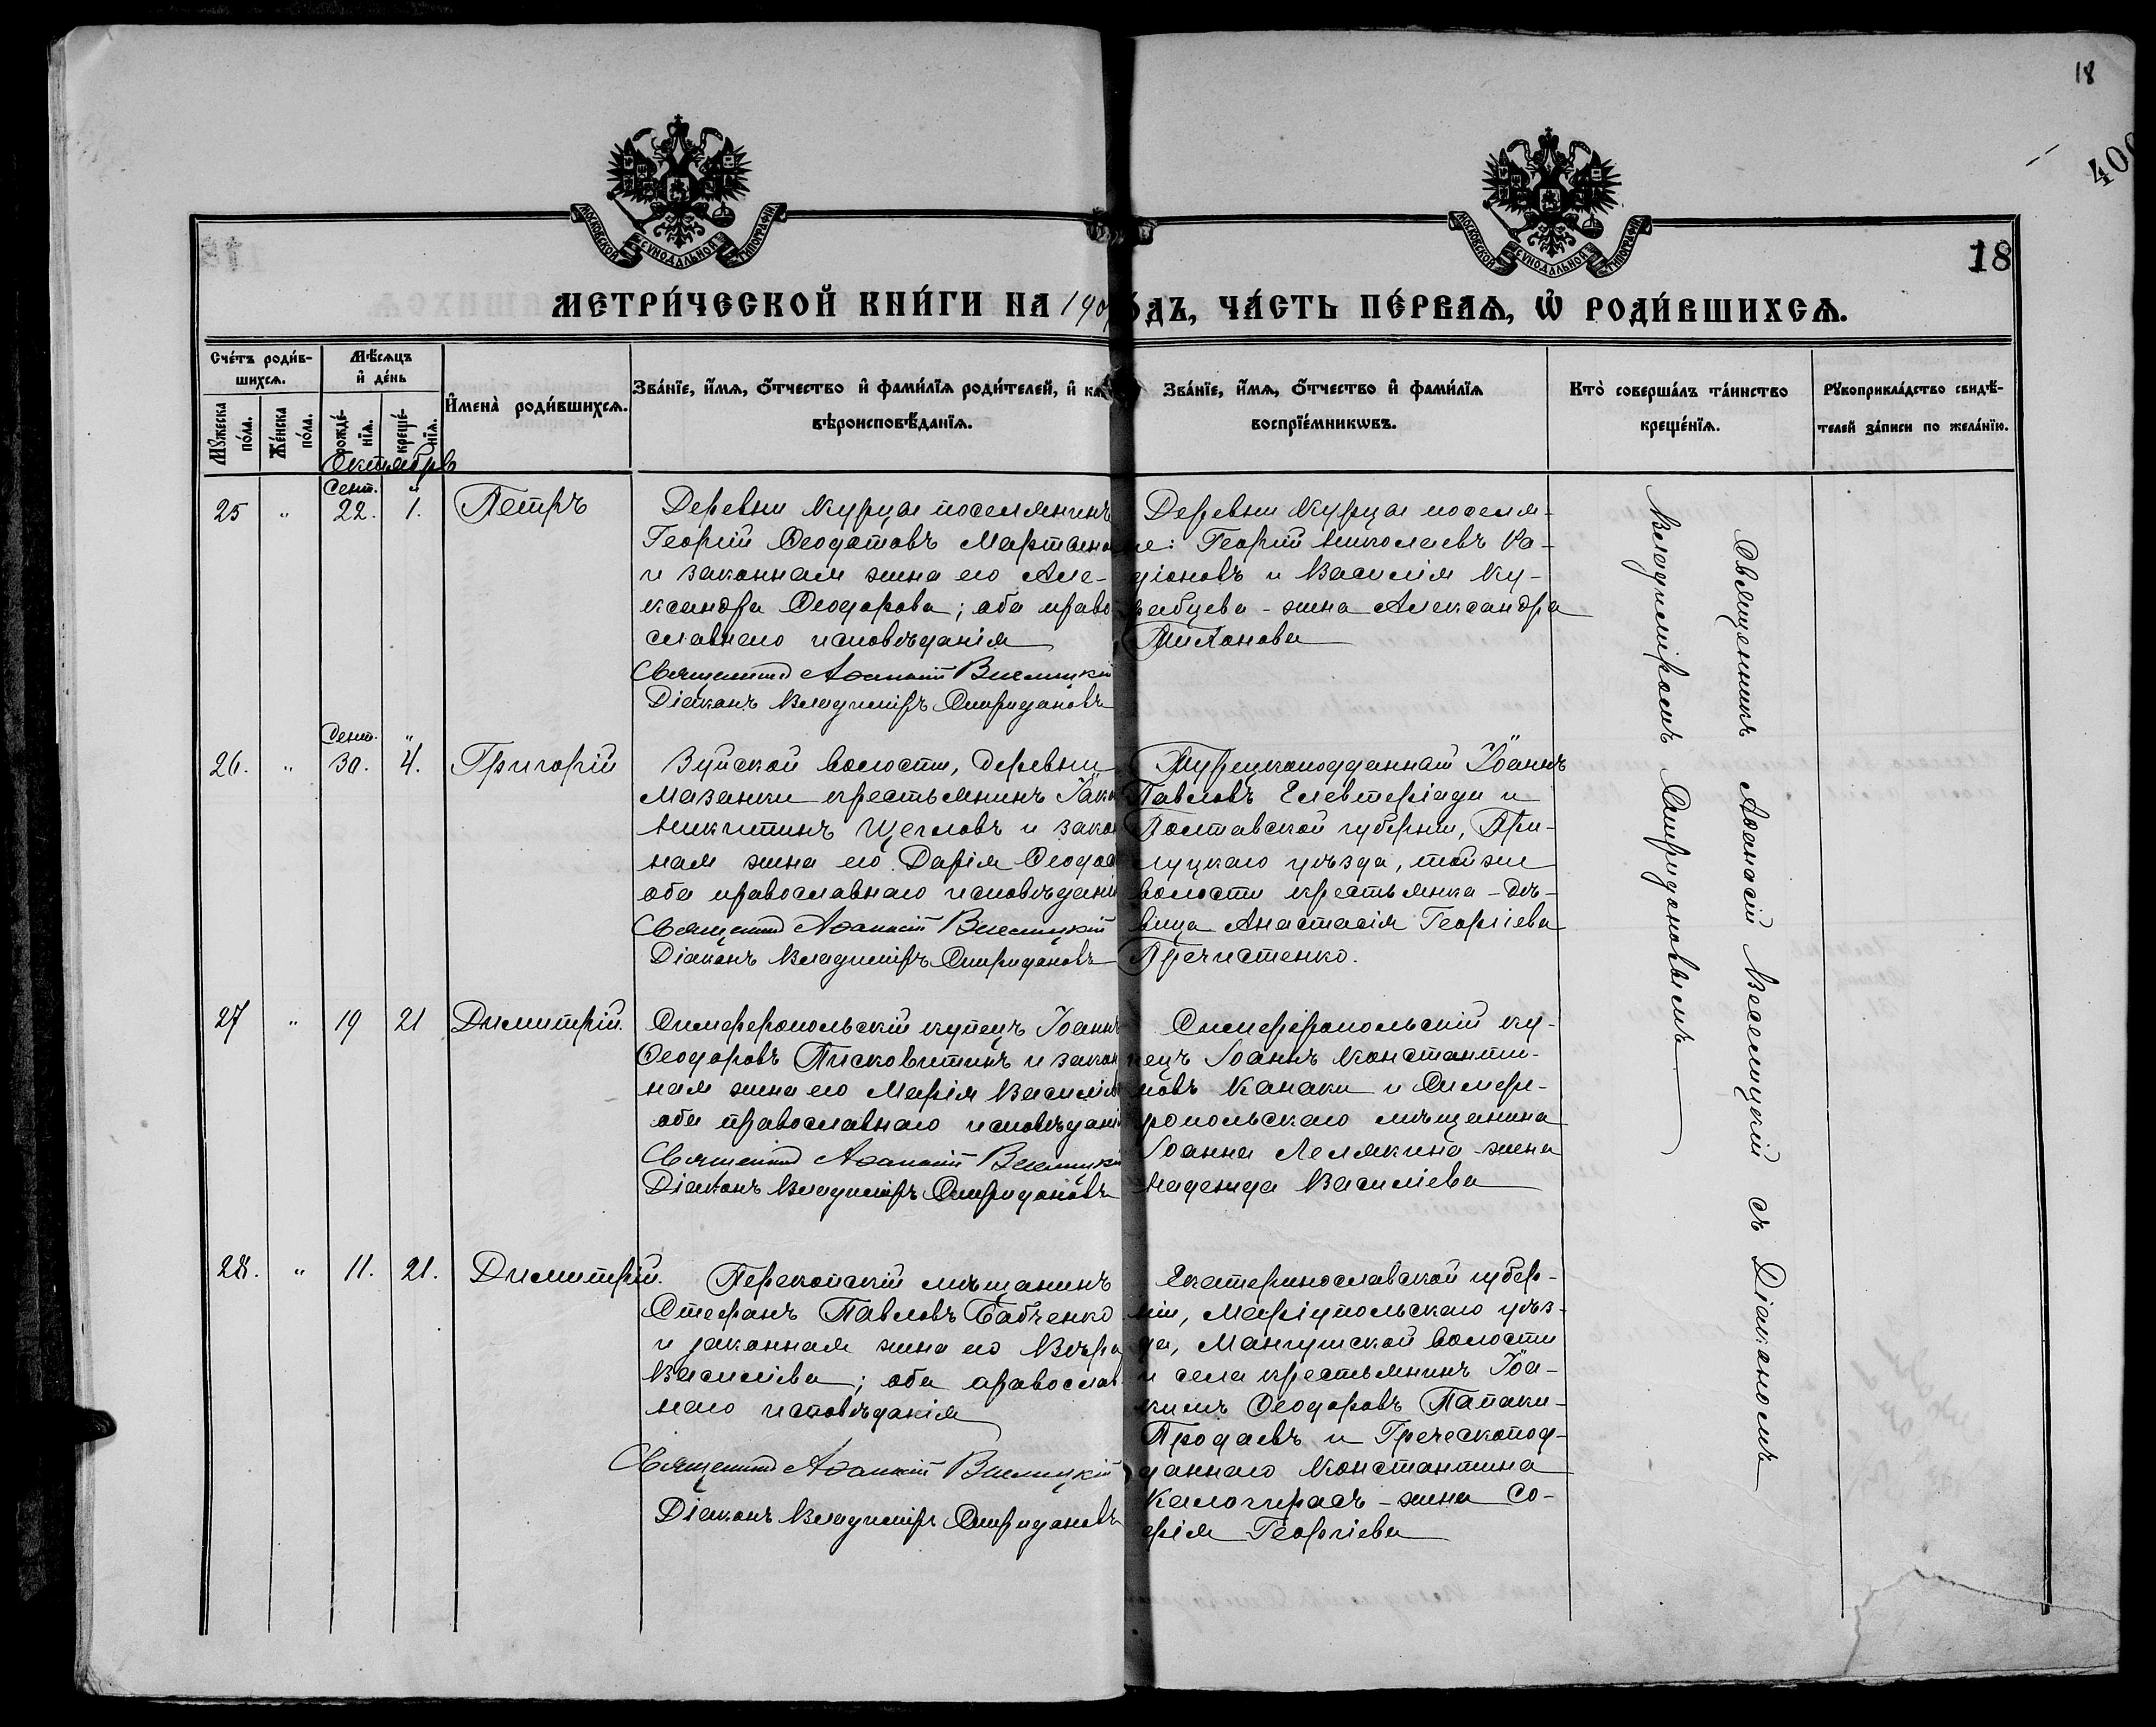 18
400
МОСКОВСКОЙ СѴНОДАЛЬНОЙ ТИПОГРАФІИ
МОСКОВСКОЙ СѴНОДАЛЬНОЙ ТИПОГРАФІИ
18
МЕТРИ́ЧЕСКОЙ КНИ́ГИ НА 190 ГО́ДЪ, ЧА́СТЬ ПЕ́РВАѦ, Ѡ҆ РОДИ́ВШИХСѦ.
Сче́тъ роди́в-
шихсѧ.
Мꙋ́жеска по́ла.
Же́нска по́ла.
Мѣ́сѧцъ
и҆ де́нь
рожде́-
нїѧ.
креще́-
нїѧ.
И҆мена̀ роди́вшихсѧ.
Зва́нїе, и҆́мѧ, ѻ҆́тчество и҆ фами́лїѧ роди́телей, и҆ ка
вѣроисповѣ́данїѧ.
Зва́нїе, и҆́мѧ, ѻ҆́тчество и҆ фами́лїѧ
воспрїе́мникѡвъ.
Кто̀ соверша́лъ та́инство
креще́нїѧ.
Рꙋкоприкла́дство свидѣ́-
телей за́писи по жела́нїю.
Октябрь
25 " Сент. 22. " 1. Петръ
Деревни Курцы поселянинъ
Георгій Ѳеодотовъ Мартыно
и законная жена его Але-
ксандра Ѳеодорова; оба право
славнаго исповѣданія
Священникъ Аѳанасій Веселицкій
Діаконъ Владиміръ Спиридоновъ
Деревни Курцы поселя-
не: Георгій Николаевъ Ка-
діоновъ и Василія Ку-
рабцева - жена Александра
Тихонова
26. " Сент. 30. " 4. Григорій
Зуйской волости, деревни
Мазанки крестьянинъ Іак
Никитинъ Щегловъ и закон
ная жена его Дарія Ѳеодо
оба православнаго исповѣдан
Священникъ Аѳанасій Веселицкій
Діаконъ Владиміръ Спиридоновъ
Турецкоподданный Іоаннъ
Павловъ Елевтеріади и
Полтавской губерніи, При-
луцкаго уѣзда, той же
волости крестьянка - дѣ-
вица Анастасія Георгіева
Пречистенко.
27 " 19 21 Димитрій.
Симферопольскій купецъ Іоаннъ
Ѳеодоровъ Писковитинъ и закон
ная жена его Марія Василіе
оба православнаго исповѣдані
Священникъ Аѳанасій Веселицкій
Діаконъ Владиміръ Спиридоновъ
Симферопольскій ку-
пецъ Іоаннъ Константи-
новъ Канаки и Симфе-
ропольскаго мѣщанина
Іоанна Лелякина - жена
Надежда Василіева
28. " 11. 21. Димитрій.
Перекопскій мѣщанинъ
Стефанъ Павловъ Бабченко
и законная жена его Вѣра
Василіева; оба православ-
наго исповѣданія
Священникъ Аѳанасій Веселицкій
Діаконъ Владиміръ Спиридоновъ
Екатеринославской губер-
ніи, Маріупольскаго уѣз-
да, Мангушской волости
и села крестьянинъ Іоа-
кимъ Ѳеодоровъ Папаки-
Продаевъ и Греческопод-
даннаго Константина
Калогирасъ - жена Со-
фія Георгіева
Священникъ Аѳанасій Веселицкій съ Діакономъ
Владиміромъ Спиридоновымъ